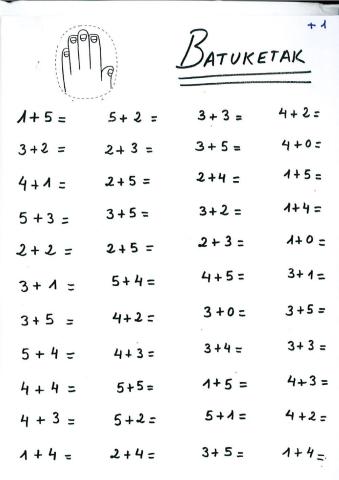 +1
BATUKETAK
1+5= 5+2= 3+3= 4+2=
3+2= 2+3= 3+5= 4+0=
4+1= 2+5= 2+4= 1+5=
5+3= 3+5= 3+2= 1+4=
2+2= 2+5= 2+3= 1+0=
3+1= 5+4= 4+5= 3+1=
3+5= 4+2= 3+0= 3+5=
5+4= 4+3= 3+4= 3+3=
4+4= 5+5= 1+5= 4+3=
4+3= 5+2= 5+1= 4+2=
1+4= 2+4= 3+5= 1+4=